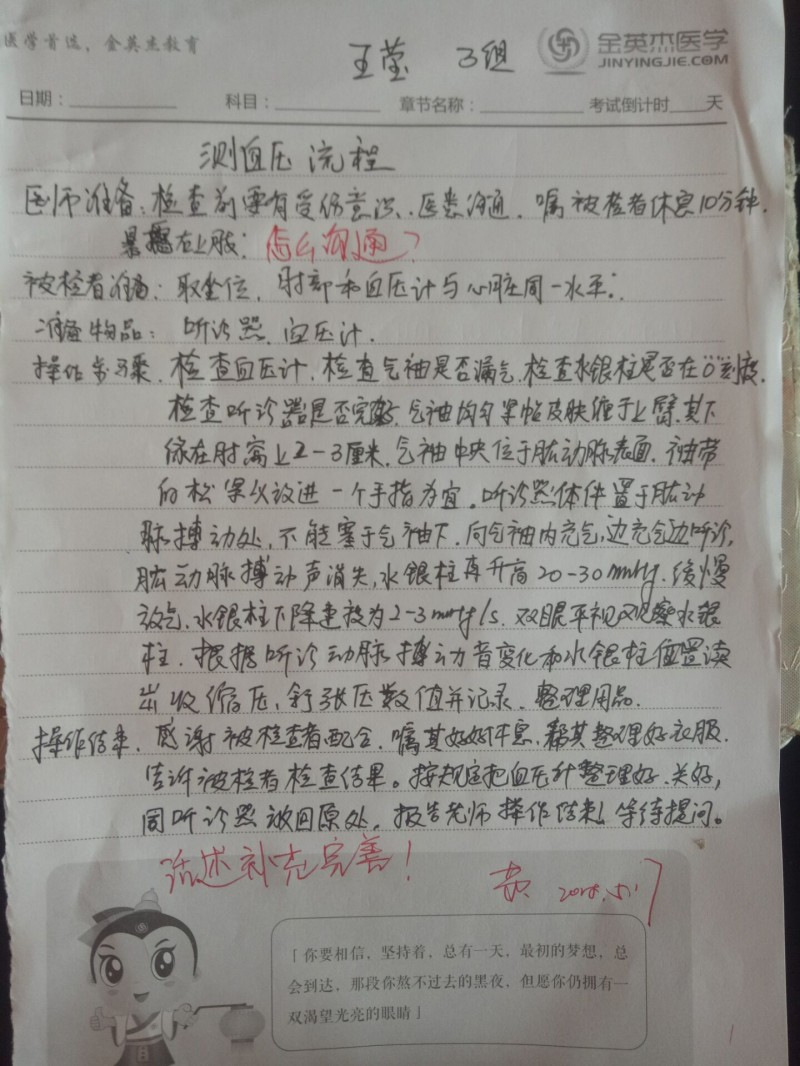 医学首选，金英杰教育
王莹 3组
金英杰医学
JINYINGJIE.COM
日期： 科目： 章节名称： 考试倒计时 天
测血压流程
医师准备：检查前要有受伤意识、医患沟通，嘱被检者休息10分钟，
暴露右上肢； 怎么沟通？
被检者准备：取坐位，肘部和血压计与心脏同一水平；
准备物品：听诊器、血压计．
操作步骤．检查血压计，检查气袖是否漏气，检查水银柱是否在"0"刻度．
检查听诊器是否完好，气袖均匀紧贴皮肤缠于上臂，其下
缘在肘窝上2-3厘米，气袖中央位于肱动脉表面，袖带
的松紧以放进一个手指为宜，听诊器体件置于肱动
脉搏动处，不能塞于气袖下，向气袖内充气，边充气边听诊，
肱动脉搏动声消失，水银柱再升高20-30mmHg，缓慢
放气，水银柱下降速度为2-3mmHg/s．双眼平视观察水银
柱．根据听诊动脉搏动音变化和水银柱位置读
出收缩压，舒张压数值并记录．整理用品．
操作结束．感谢被检查者配合，嘱其好好休息，帮其整理好衣服．
告诉被检者检查结果。按规定把血压计整理好．关好，
同听诊器放回原处，报告老师操作结束！等待提问。
话述补充完善！
「你要相信，坚持着，总有一天，最初的梦想，总
会到达，那段你熬不过去的黑夜，但愿你仍拥有一
双渴望光亮的眼睛」
1